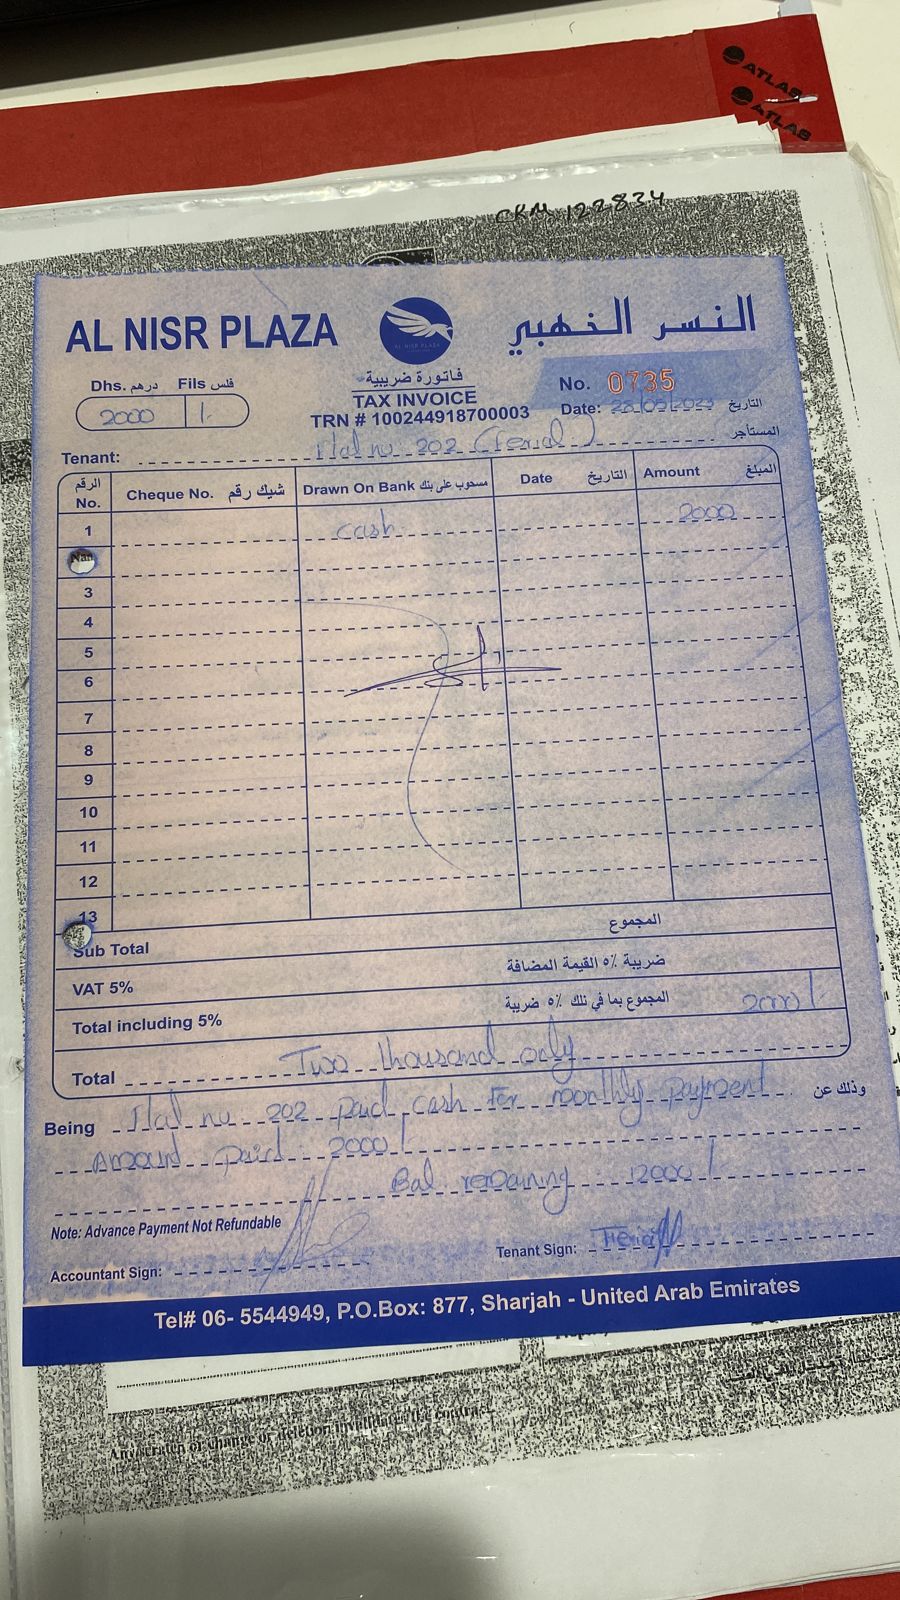 ATLAS
ATLAS
122824
AL NISR PLAZA
AL NISR PLAZA
النسر الخهبي
Dhs. درهم Fils فلس
2000 /-
فاتورة ضريبية
TAX INVOICE
TRN # 100244918700003
No. 0735
Date: /05/2023 التاريخ
Tenant: 202 (Ferial) المستأجر
الرقم No. Cheque No. شيك رقم Drawn On Bank مسحوب على بنك Date التاريخ Amount المبلغ
1 cash 2000
Nan
3
4
5
6
7
8
9
10
11
12
13
Sub Total المجموع
VAT 5% ضريبة ٥٪ القيمة المضافة
Total including 5% المجموع بما في تلك ٥٪ ضريبة 2000/-
Total Two thousand only
Being 202 paid cash For monthly payment وذلك عن
Amount paid 2000/
Bal remaining 12000/
Note: Advance Payment Not Refundable
Accountant Sign:
Tenant Sign: Ferial
Tel# 06- 5544949, P.O.Box: 877, Sharjah - United Arab Emirates
change or deletion invalidates the contract